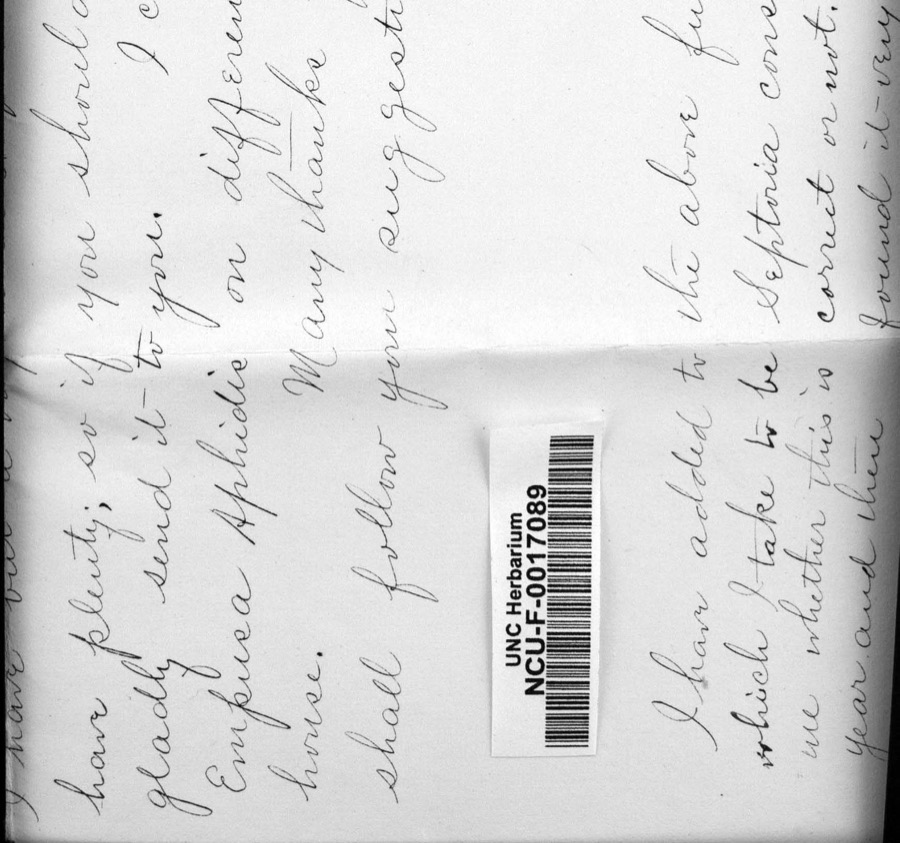 I have
have plenty; so if you should
gladly send it to you. I c
Empusa Aphidis on differen
house. Many thanks
shall follow your suggesti
UNC Herbarium
NCU-F-0017089
I have added to the above fu
which I take to be Septoria cons
me whether this is correct or not.
year and then found it very